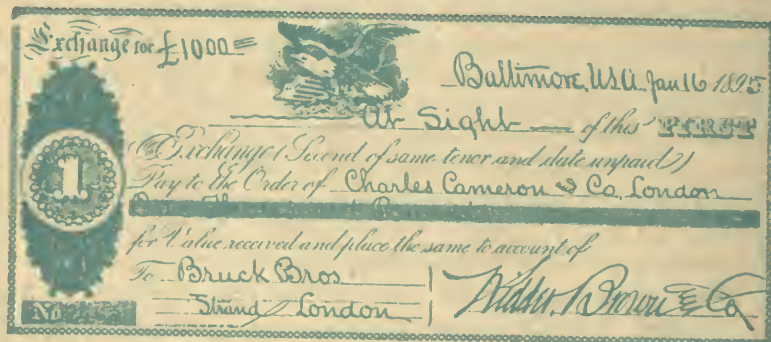 Exchange for £1000=
Baltimore, USA. Jan 16 1895
At Sight of this FIRST
Exchange (Second of same tenor and date unpaid)
Pay to the Order of Charles Cameron & Co, London
for Value received and place the same to account of
To Bruck Bros
Strand London
Brown & Co
1
No